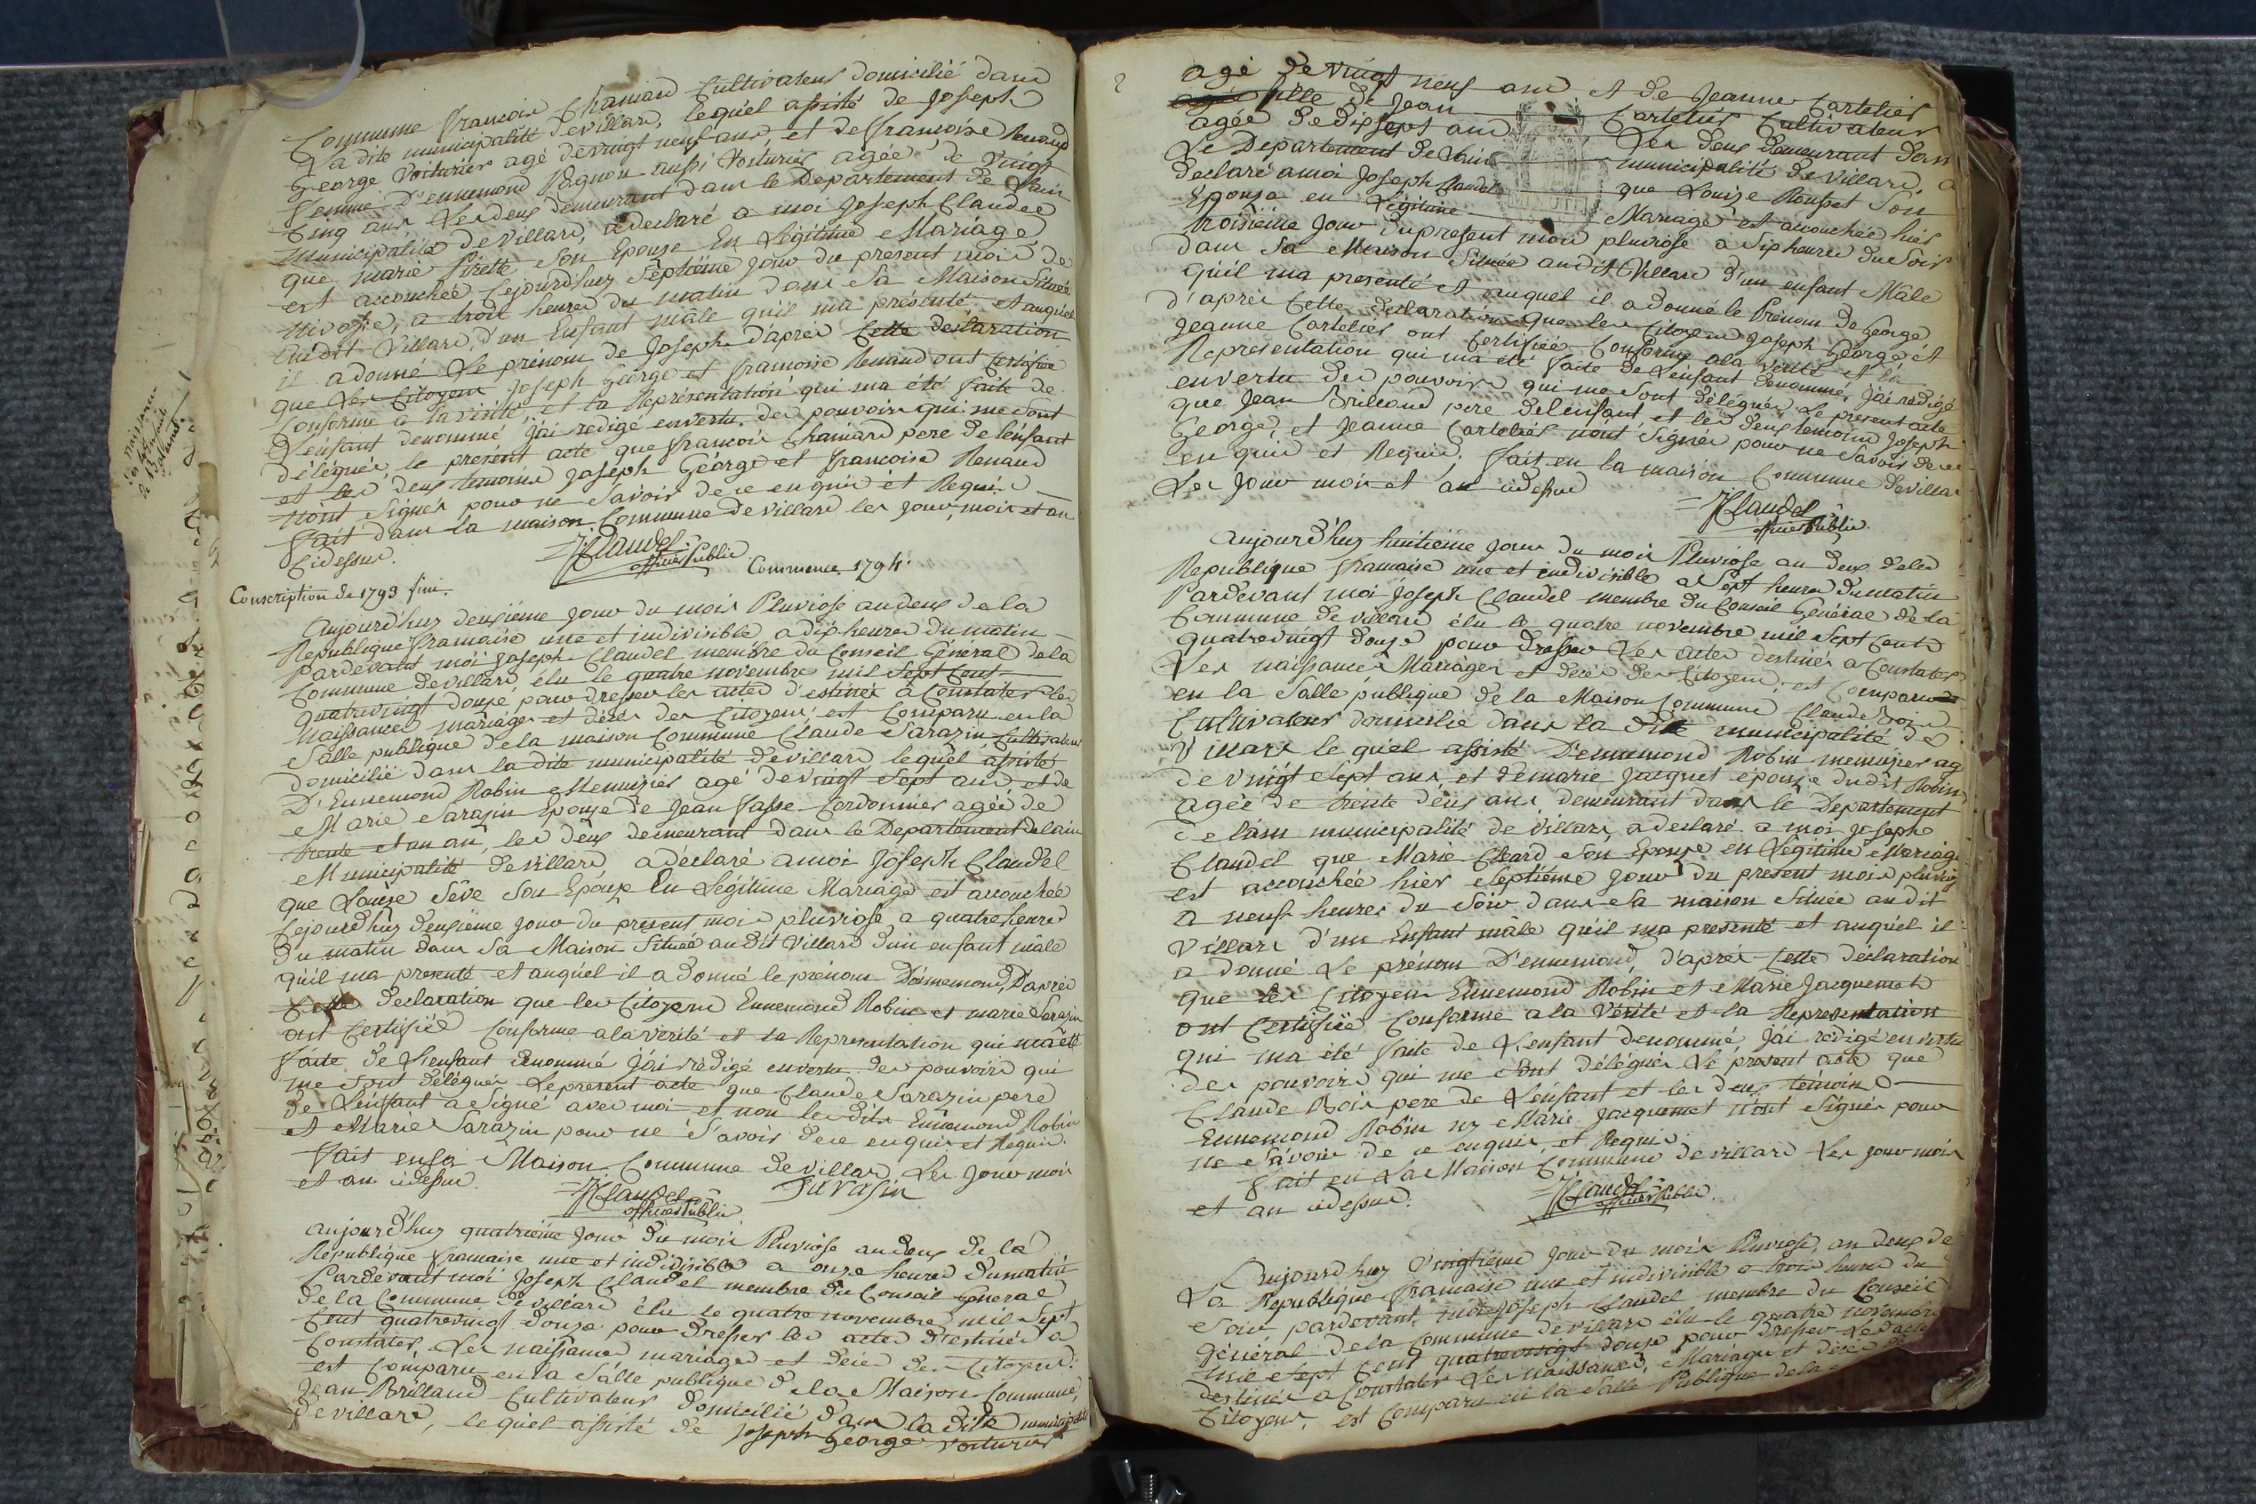 Commune francois Chanard Cultivateur domicilié dans
La dite municipalité de villard, lequel assisté de Joseph
George Voiturier agé de vingt neuf ans, et de francoise Renaud
femme D'ennemond Pagnon aussi Voiturier agée de vingt
Cinq ans Les deux demeurant dans le Departement de L'ain
municipalité de villard, a declaré a moi Joseph Claudel
que marie Pirette Son Epouse En Légitime Mariage
est accouchée Cejourd'huy Septième jour du present mois de
Nivose, a trois heures du matin dans Sa Maison Située
audit Villard, d'un Enfant mâle qu'il ma présenté et auquel
il a donné Le prénom de Joseph d'aprés Cette déclaration
que Les Citoyens Joseph George et francoise Renaud ont Certifiée
Conforme a la vérité, et la Représentation qui ma été faite de
L'enfant denommé J'ai redigé envertu des pouvoirs qui me Sont
délégués, le present acte que francois Chanard pere de l'enfant
et les deux temoins Joseph George et francoise Renaud
n'ont Signés pour ne Savoir de ce enquis et Requis
fait dans la maison Commune de villard les jour, mois et an
Cidessus. JClaudel
officier Public
Commence 1794.
Conscription de 1793 fini.
aujourd'huy deuxième jour du mois Pluviose an deux de la
Republique francaise une et indivisible a dix heures du matin
Pardevant moi Joseph Claudel membre du Conseil General de la
Commune de villard élu le quatre novembre mil Sept Cent
quatrevingt douze pour dresser les actes destinés a Constater les
Naissances mariages et décès des Citoyens, est Comparu en la
Salle publique de la maison Commune Claude Sarazin Cultivateur
domicilié dans la dite municipalité de villard lequel assisté
D'Ennemond Robin Menuisier agé de vingt Sept ans et de
Marie Sarazin Epouse de Jean fasse Cordonnier agée de
trente et un an, les deux demeurant dans le Departement de lain
Municipalité de villard, a déclaré a moi Joseph Claudel
que Louise Sève Son Epouse En Légitime Mariage est accouchée
Cejourd'huy deuxième jour du present mois pluviose a quatre heures
du matin dans Sa Maison Située audit Villard d'un enfant mâle
qu'il ma presenté et auquel il a donné le prénom D'ennemond, D'aprés
Cette déclaration que les Citoyens Ennemond Robin et marie Sarazin
ont Certifiée Conforme a la vérité et la Representation qui ma été
faite de L'enfant denommé J'ai rédigé envertu des pouvoirs qui
me Sont délégués Le present acte que Claude Sarazin pere
de L'enfant a Signé avec moi et non les dits Ennemond Robin
et Marie Sarazin pour ne Savoir de ce enquis et Requis.
fait en la Maison Commune de villard Les Jour mois
et an cidessus. JClaudel Sarasin
officier Public
aujourd'huy quatrième jour du mois Pluviose an deux de la
Republique francaise une et indivisible a onze heures du matin
Pardevant moi Joseph Claudel membre du Conseil general
de la Commune de villard élu le quatre novembre mil Sept
Cent quatrevingt douze pour dresser les actes destinés a
Constater, Les naissances mariages et décès des Citoyens:
est Comparu en la Salle publique de la Maison Commune,
Jean Brilland Cultivateur domicilié dans la dite municipalité
de villard, lequel assisté de Joseph George voiturier
2
agé de vingt neuf ans et de Jeanne Cartelier
agée fille de Jean Cartelier Cultivateur
agée de dix Sept ans Les deux demeurant dans
Le Departement de L'ain municipalité de Villard, a
declaré a moi Joseph Claudel que Louise Rousset Son
Epouse en Légitime Mariage est accouchée hier
troisième jour du present mois pluviose a Six heures du Soir
dans Sa Maison Située audit Villard d'un enfant Mâle
qu'il ma presenté et auquel il a donné le Prénom de George
d'aprés Cette déclaration que les Citoyens Joseph George et
Jeanne Cartelier ont Certifiée Conforme a la vérité et la
Representation qui ma été faite de L'enfant denommé, J'ai redigé
envertu des pouvoirs qui me Sont délégués Le present acte
que Jean Brilland pere de l'enfant et les deux temoins Joseph
George, et Jeanne Cartelier n'ont Signés pour ne Savoir de ce
enquis et Requis. fait en la maison Commune de villard
Les Jour mois et an cidessus
JClaudel
officier Public
aujourd'huy huitième jour du mois Pluviose an deux de la
Republique francaise une et indivisible a Sept heures du matin
Pardevant moi Joseph Claudel membre du Conseil Général de la
Commune de villard élu le quatre novembre mil Sept Cent
quatrevingt douze pour dresser Les actes destinés a Constater
Les naissances Mariages et décès des Citoyens, est Comparu
en la Salle publique de la Maison Commune Claude Bois
Cultivateur domicilié dans la dite municipalité de
Villard lequel assisté D'ennemond Robin menuisier ag
de vingt Sept ans et de marie Jacquet épouse dudit Robin
agée de trente deux ans demeurant dans le Departement
de lain municipalité de Villard, a declaré a moi Joseph
Claudel que Marie Clard Son Epouse en Légitime Mariage
est accouchée hier Septième jour du present mois pluviose
a neuf heures du Soir dans Sa maison Située audit
Villard d'un Enfant mâle qu'il ma presenté et auquel il
a donné Le prénom D'ennemond, d'aprés Cette déclaration
que les Citoyens Ennemond Robin et Marie Jacquemet
ont Certifiée Conforme a la Vérité et la Representation
qui ma été faite de L'enfant denommé, J'ai rédigé envertu
des pouvoirs qui me Sont délégués Le présent acte que
Claude Bois pere de L'enfant et les deux témoins
Ennemond Robin ny Marie Jacquemet n'ont Signés pour
ne Savoir de ce enquis, et Requis
fait en La Maison Commune de villard Les jour mois
et an cidessus. JClaudel
officier Public
Aujourd'huy Vingtième jour du mois Pluviose, an deux de
La Republique francaise une et indivisible a trois heures du
Soir pardevant moi Joseph Claudel membre du Conseil
Général de la Commune de villard élu le quatre novembre
mil Sept Cent quatrevingt douze pour dresser Les actes
destinés a Constater Les Naissances, Mariages et décès des
Citoyens, est Comparu en la Salle Publique de la